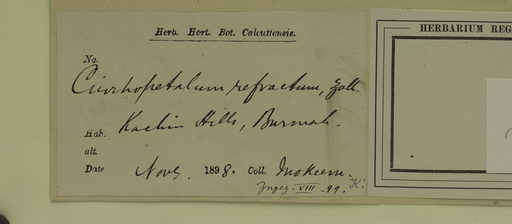 Herb. Hort. Bot. Calcuttensis.
HERBARIUM REG
No.
Cirrhopetalum refractum, Zoll
Hab. Kachin Hills, Burmah.
alt.
Date Novr. 1898. Coll. Mokeem.
VIII .99.